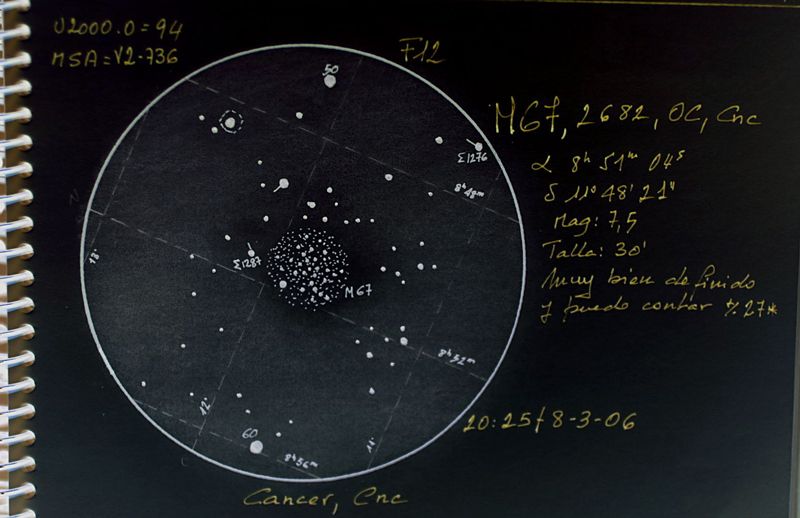 U2000.0 = 94
MSA = V2-736
F12
50
M67, 2682, OC, Cnc
Σ1276
α 8h 51m 04s
δ 11° 48' 21"
8h 48m
Mag: 7,5
Talla: 30'
13°
Σ1287
M67
Muy bien definido
y puedo contar 27*
8h 52m
12°
20:25 / 8-3-06
60
11°
8h 56m
Cancer, Cnc